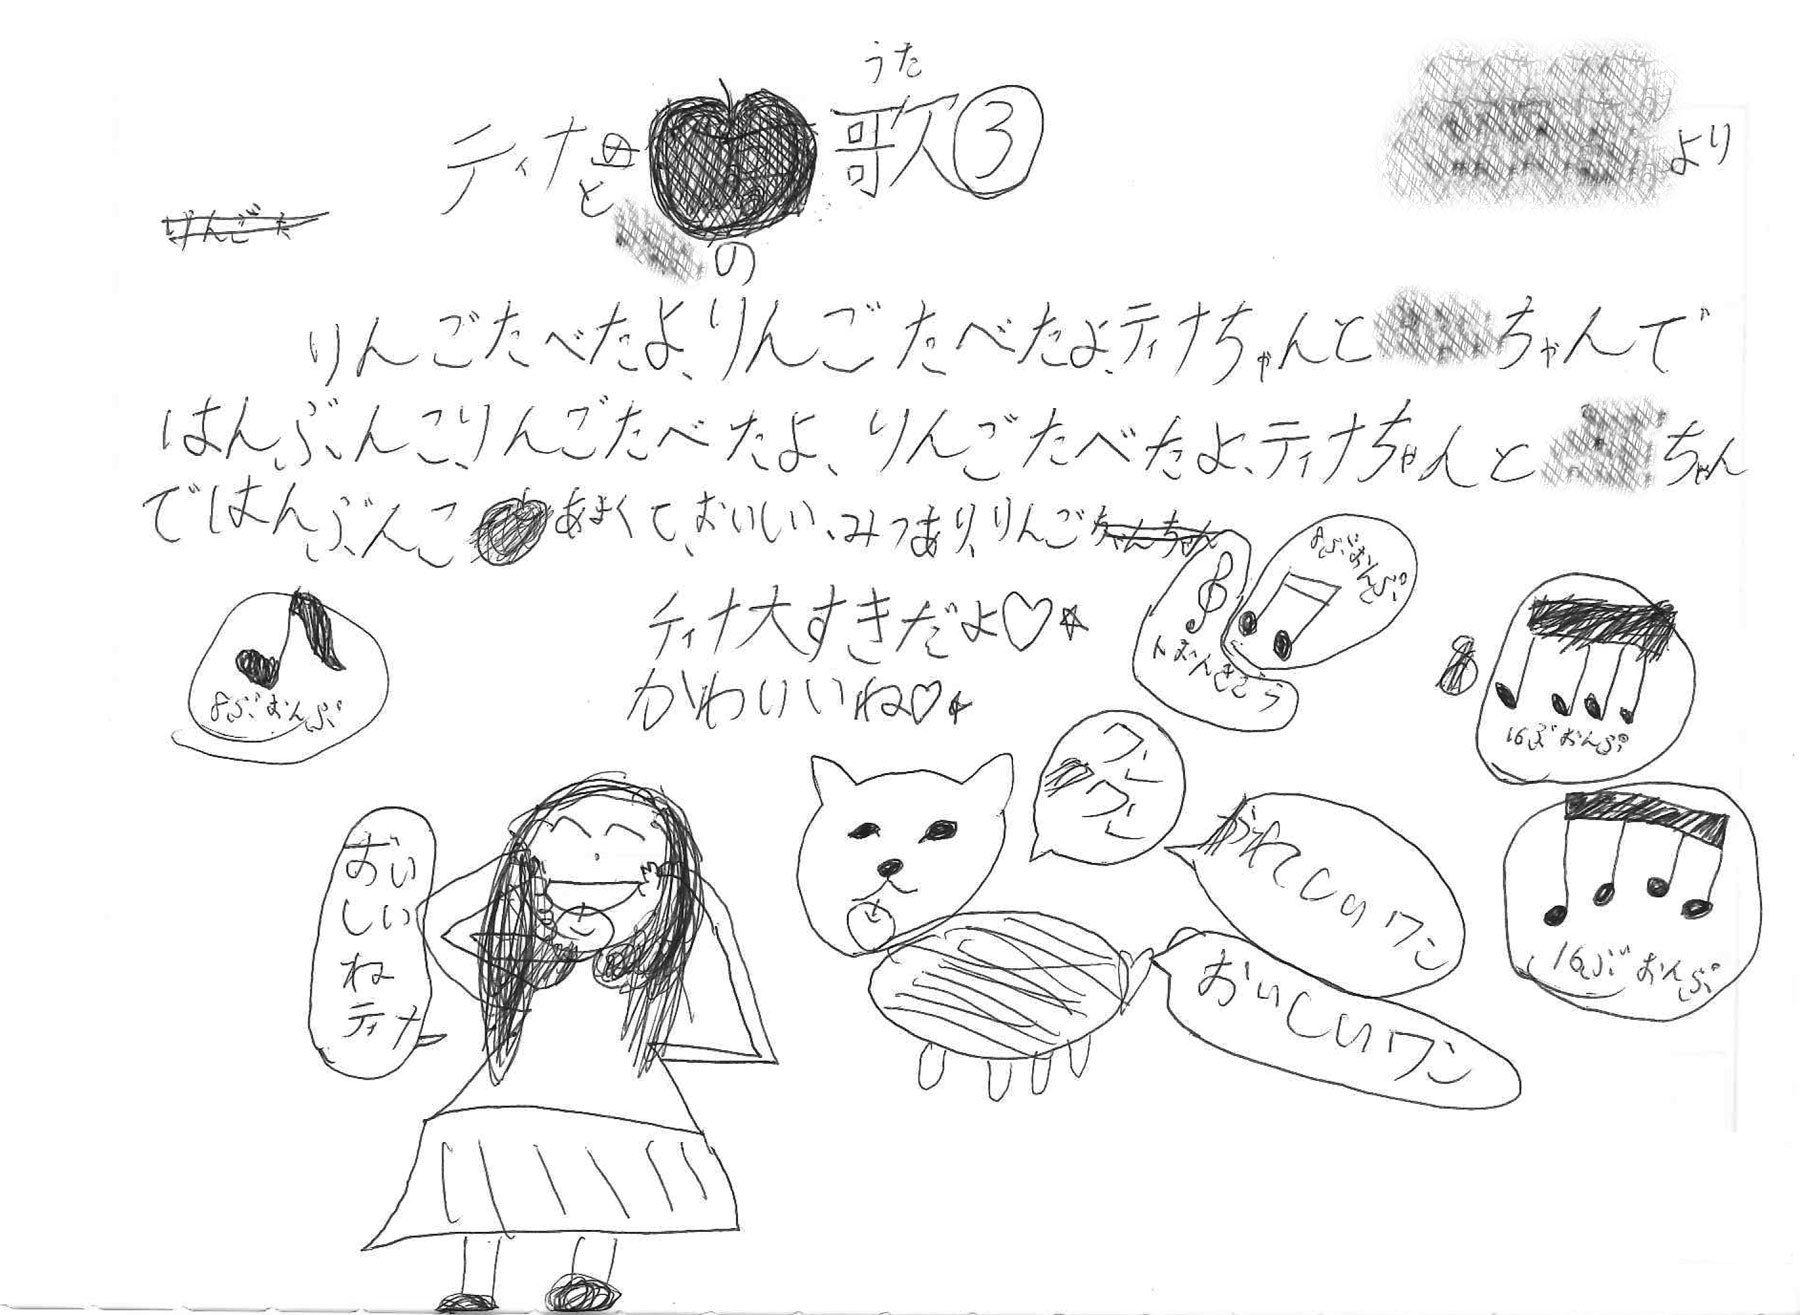 うた
ティナと の 歌③
より
りんごたべたよ、りんごたべたよ、ティナちゃんと ちゃんで
はんぶんこ、りんごたべたよ、りんごたべたよ、ティナちゃんと ちゃん
ではんぶんこ あまくて、おいしい、みつあり、りんご
ティナ大すきだよ♡☆
かわいいね♡☆
8ぶおんぷ
トおんきごう
8ぶおんぷ
16ぶおんぷ
16ぶおんぷ
おい
しい
ね
ティナ
ワン
ワン
うれしいワン
おいしいワン